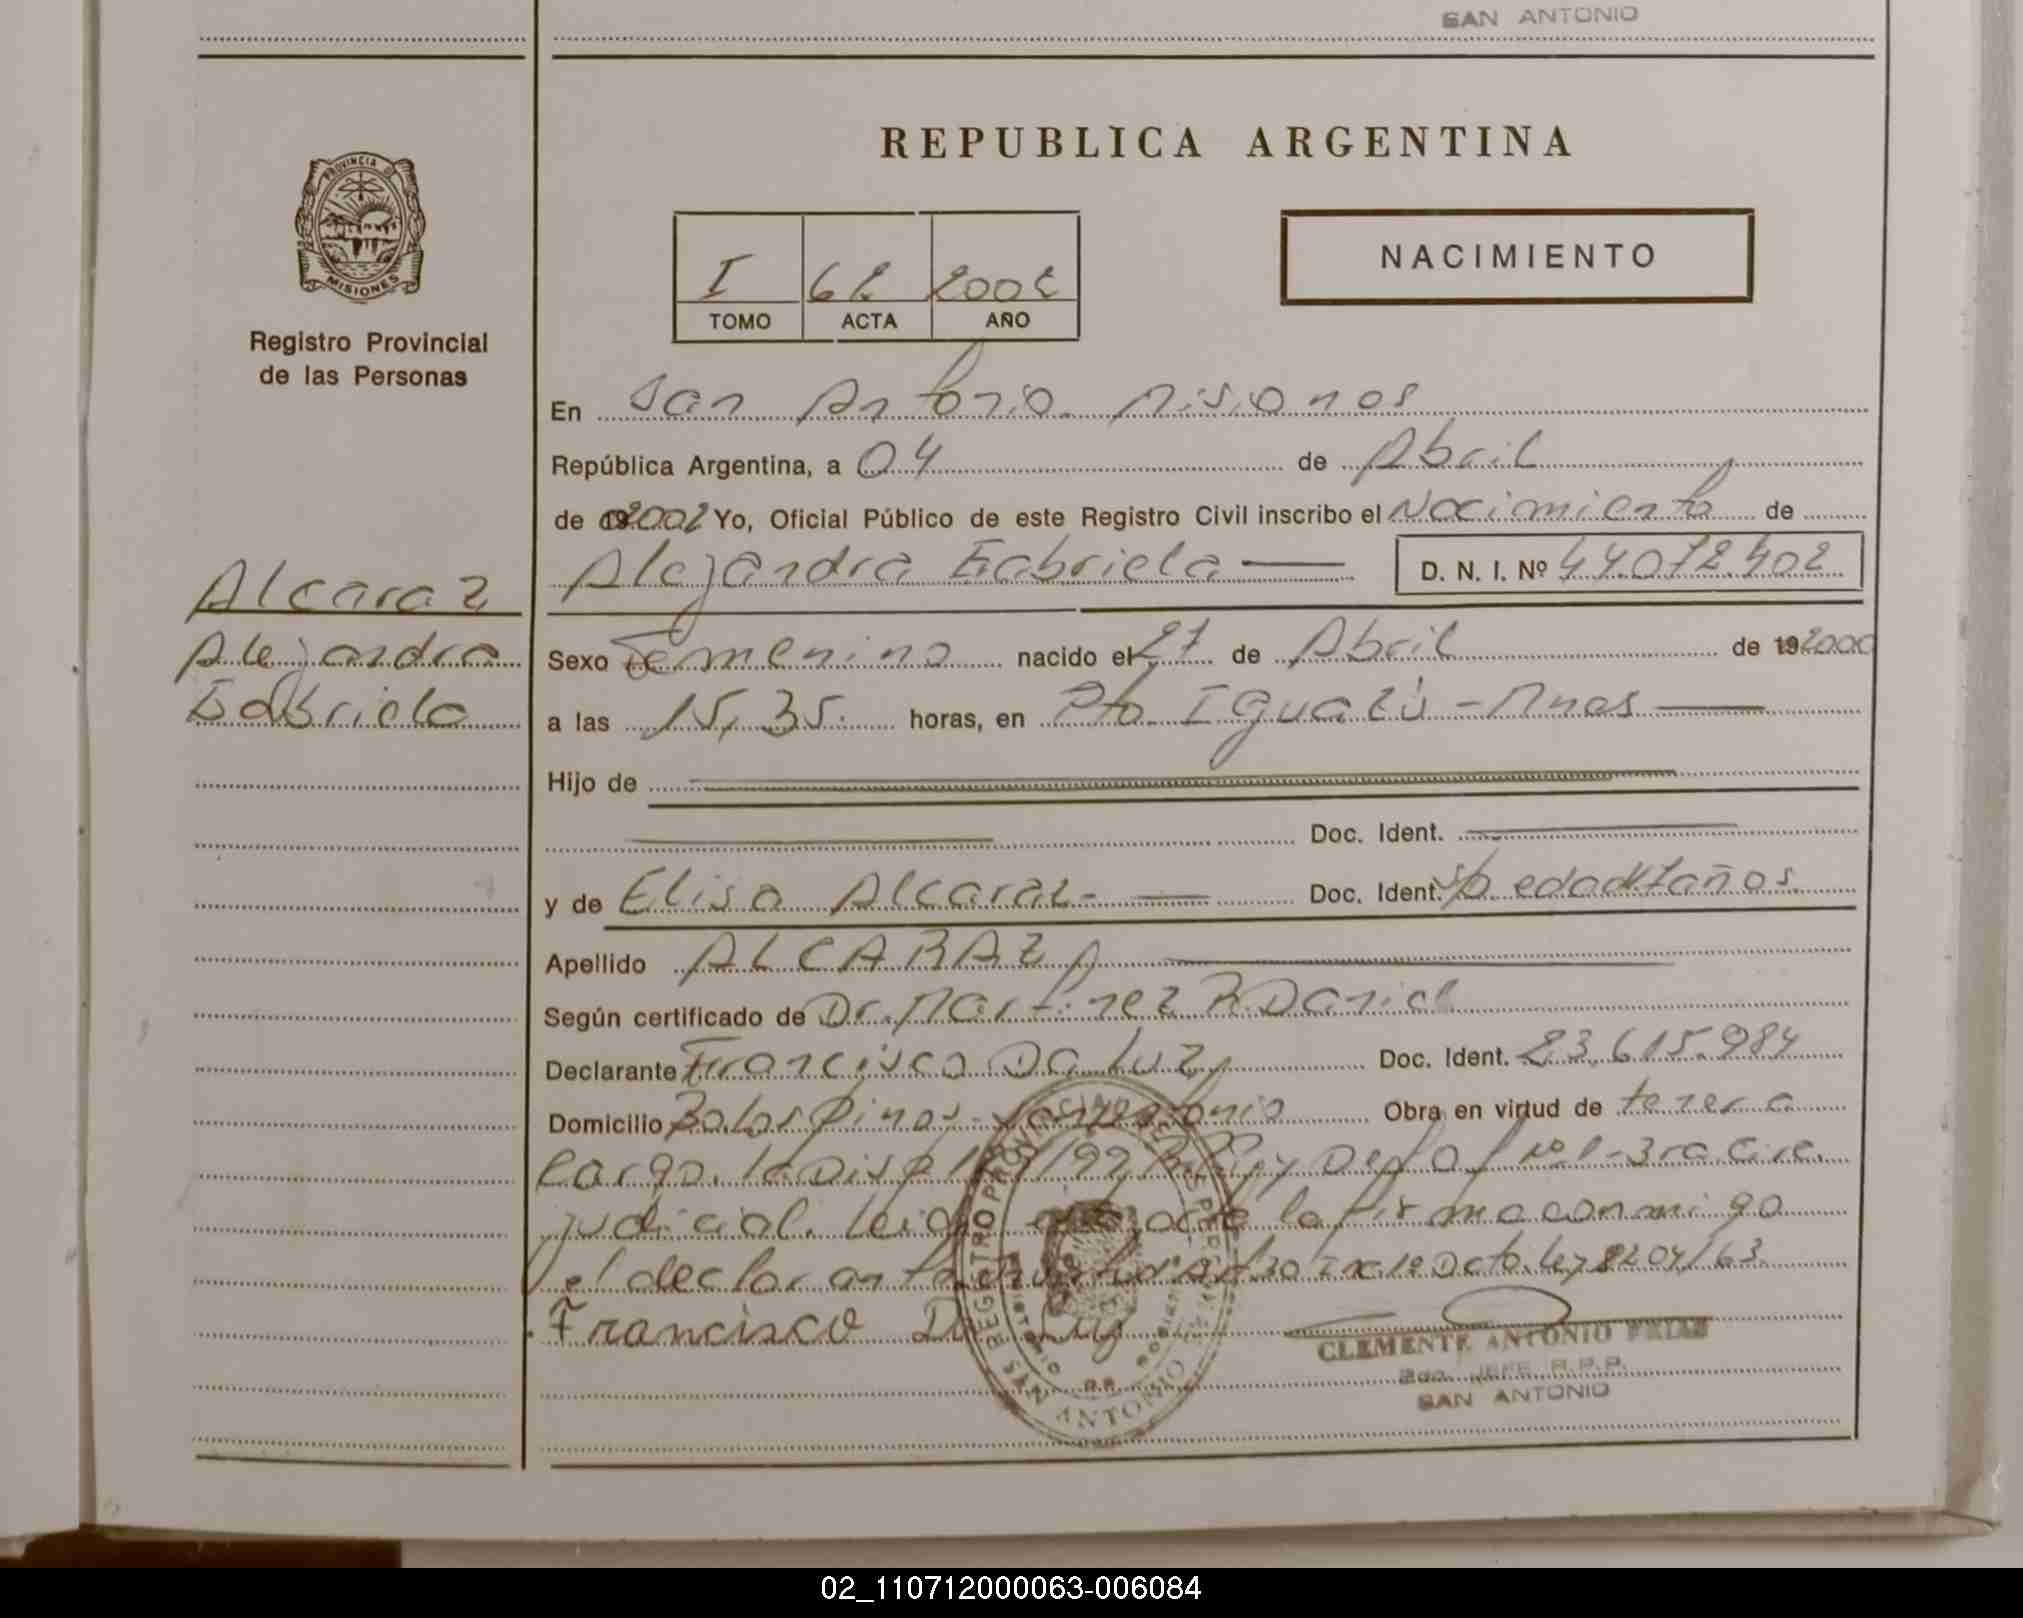 SAN ANTONIO
REPUBLICA ARGENTINA
PROVINCIA DE
MISIONES
Registro Provincial
de las Personas
NACIMIENTO
I 62 2002
TOMO ACTA AÑO
En San Antonio Misiones
República Argentina, a 04 de Abril
de 2002 Yo, Oficial Público de este Registro Civil inscribo el Nacimiento de
Alejandra Gabriela D. N. I. Nº 44.072.402
Alcaraz
Alejandra
Gabriela
Sexo Femenino nacido el 27 de Abril de 19 2000
a las 15,35. horas, en Pto Iguazú - Mnes
Hijo de
Doc. Ident.
y de Elisa Alcaraz - Doc. Ident. edad años
Apellido ALCARAZ
Según certificado de Dr. Martinez R Daniel
Declarante Francisco Da Luz Doc. Ident. 23.615.984
Domicilio Bo Los Pinos - San Antonio Obra en virtud de
cargo. la Disp Nº1-3ra Circ.
judicial. Leida la firma conmigo
el declarante Dcto. Ley 8204/63.
Francisco Da Luz
REGISTRO PROVINCIAL DE LAS PERSONAS
SAN ANTONIO
CLEMENTE ANTONIO FRIAS
2do. JEFE R.P.P.
SAN ANTONIO
02_110712000063-006084